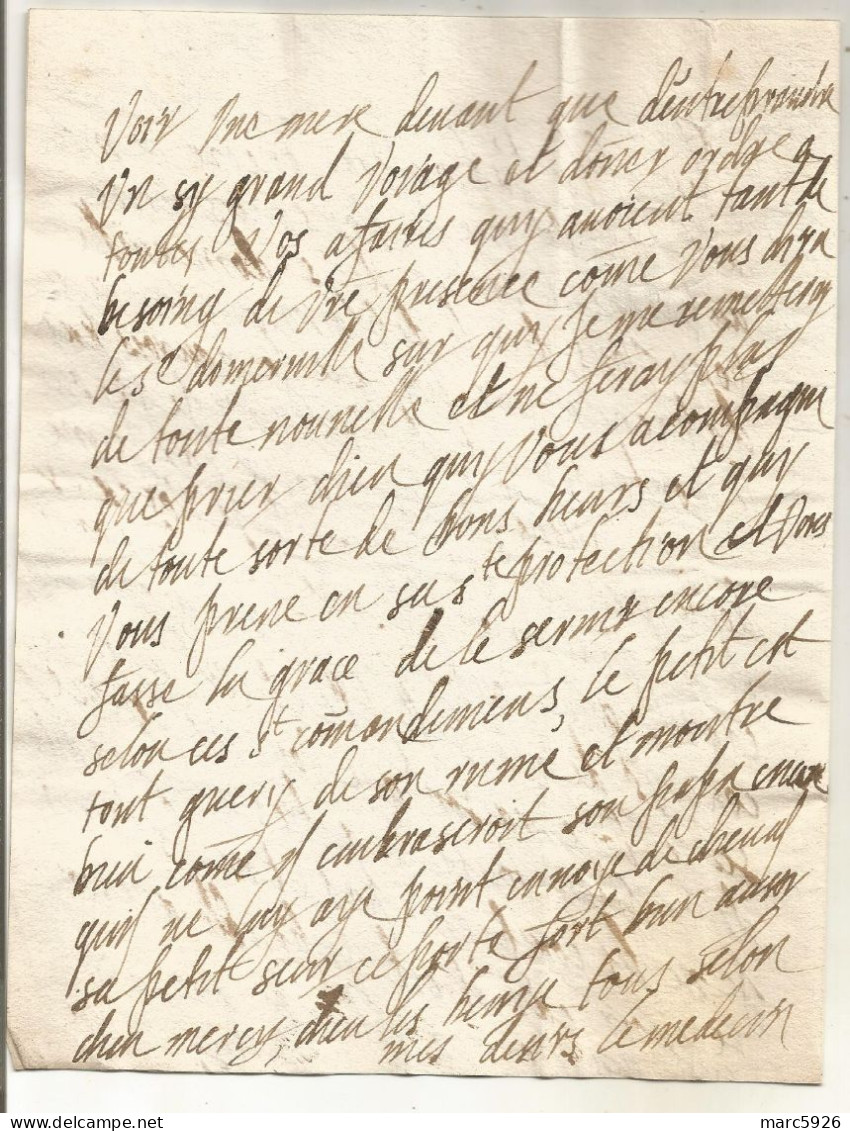 Voir Vne mere deuant que d'entreprandre
Vn sy grand Voiage et doñer ordre a
toutes Vos afaires quy auoient tant de
besoing de Vre presence come Vous dira
le sr sur quy Je me remettray
de toute nouuelle et ne feray plus
que prier dieu quy Vous acompagne
de toute sorte de bons heurs et quy
Vous prene en sa ste protection et Vous
fasse la grace de le seruir encore
selon ces st comandemens, le petit est
tout guery de son rume et montre
bien come il embraseroit son papa encore
quil ne luy aye point enuoye de cheual
sa petit seur ce porte fort bien aussy
dieu mercy, dieu les benye tous selon
mes desirs le medecin
marc5926